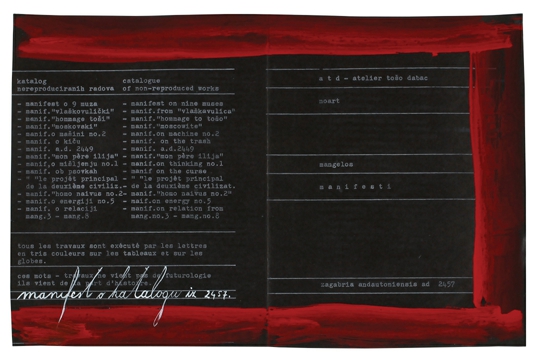 katalog
nereproduciranih radova
- manifest o 9 muza
- manif."vlaškovulički"
- manif."hommage toši"
- manif."moskovski"
- manif.o mašini no.2
- manif. o kiču
- manif. a.d. 2449
- manif."mon père ilija"
- manif.o mišljenju no.1
- manif. ob psovkah
- " "le projét principal
de la deuxième civiliz.
- manif."homo naivus no.2
- manif.o energiji no.5
- manif. o relaciji
mang.3 - mang.8
catalogue
of non-reproduced works
- manifest on nine muses
- manif.from "vlaškavulica"
- manif."hommage to tošo"
- manif."moscowite"
- manif.on machine no.2
- manif. on the trash
- manif. a.d.2449
- manif."mon père ilija"
- manif.on thinking no.1
- manif. on the curse
- " "le projét principal
de la deuxième civilizat.
- manif."homo naivus no.2"
- manif.on energy no.5
- manif.on relation from
mang.nn.3 - mang.no.8
tous les travaux sont exécuté par les lettres
en tris couleurs sur les tableaux et sur les
globes.
ces mots - travaux ne vient pas de futurologie
ils vient de la part d'histoire.
manifest o katalogu ix 2457.
a t d - atelier tošo dabac
noart
mangelos
m a n i f e s t i
zagabria andautoniensis ad 2457